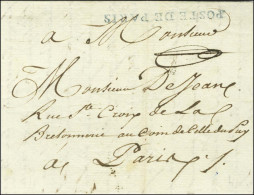 POSTE DE PARIS
a Monsieur
Monsieur DeJean
Rue Ste Croix de La
Bretonnerie au Coin de Celle du Puy
a Paris